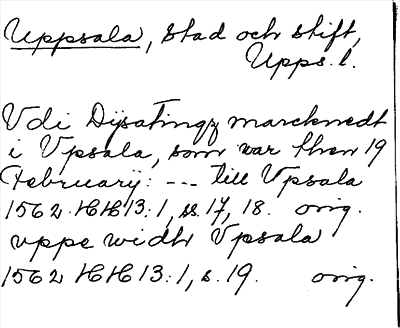 Uppsala, stad och stift,
Upps. l.
Vdi Dijsatingz marcknedt
i Vpsala, som war then 19
Februarij: --- till Vpsala
1562 HH 13:1, ss. 17, 18. orig.
vppe widh Vpsala
1562 HH 13:1, s. 19. orig.